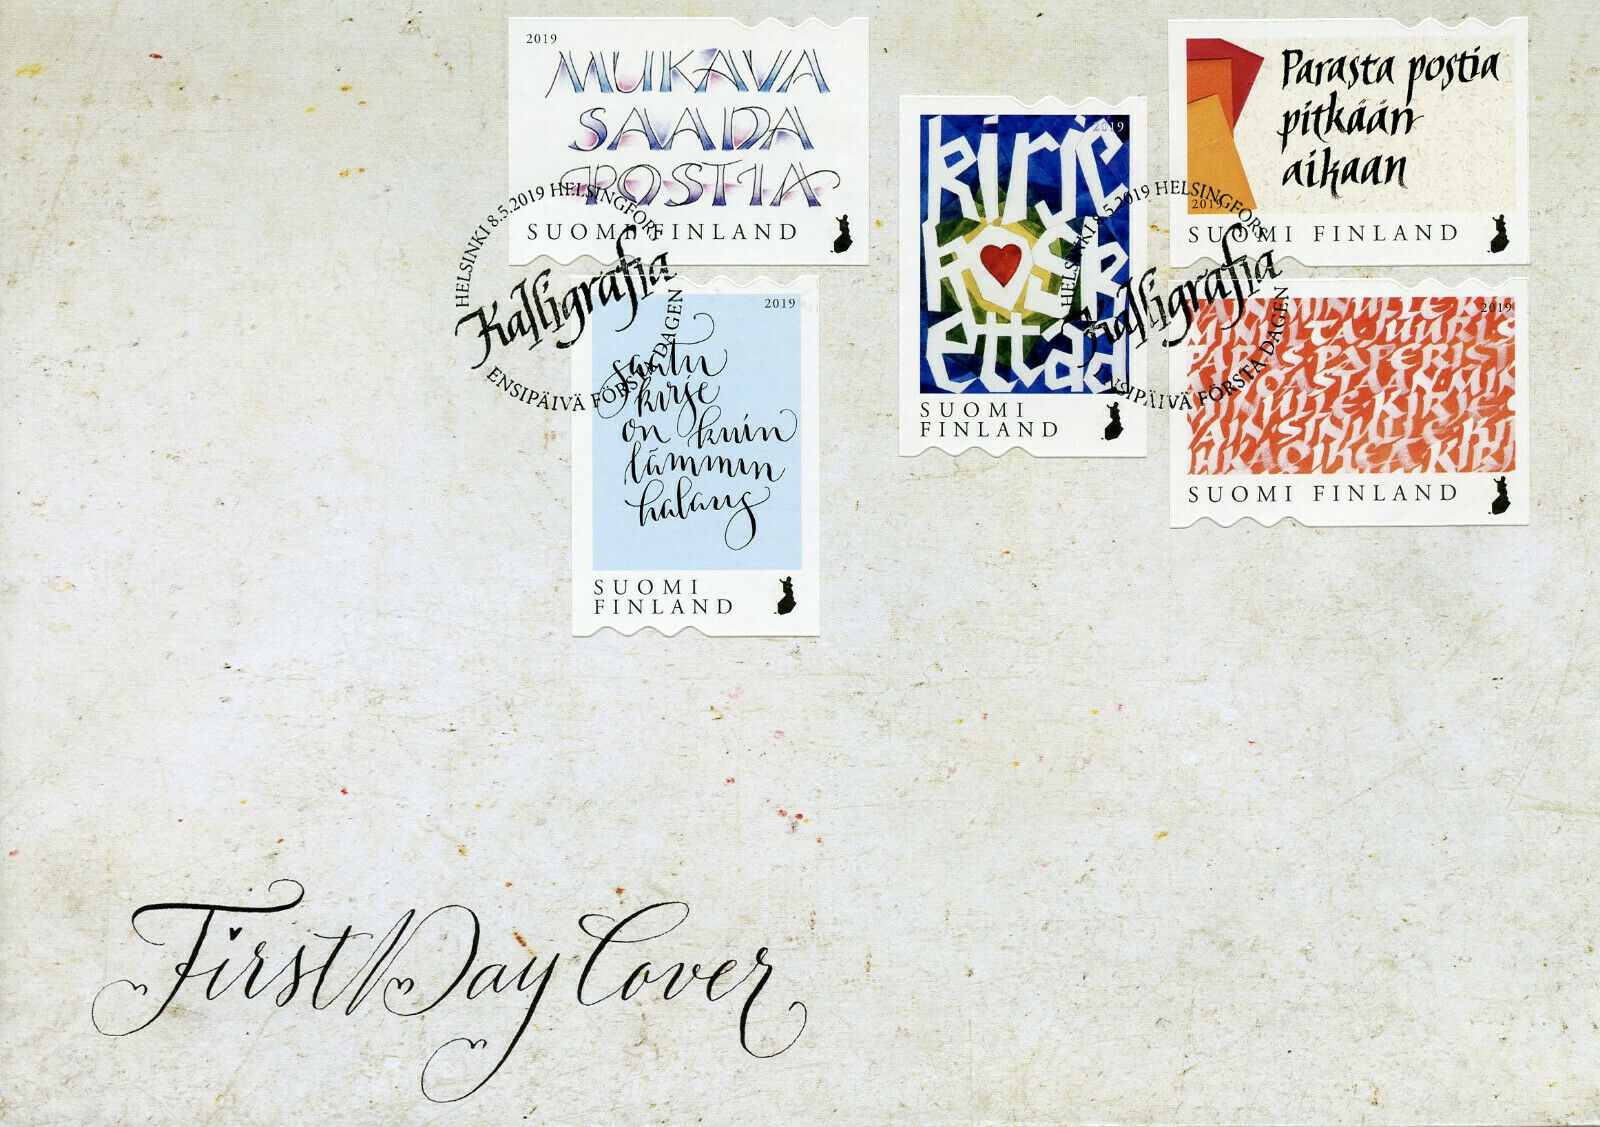 2019
MUKAVA
SAADA
POSTIA
SUOMI FINLAND
HELSINKI 8.5.2019 HELSINGFORS
Kalligrafia
ENSIPÄIVÄ FÖRSTA DAGEN
2019
saatu
kirje
on kuin
lämmin
halaus
SUOMI
FINLAND
2019
kirje
koskettaa
SUOMI
FINLAND
Parasta postia
pitkään
aikaan
2019
SUOMI FINLAND
HELSINKI 8.5.2019 HELSINGFORS
Kalligrafia
ENSIPÄIVÄ FÖRSTA DAGEN
2019
PARAS PAPERIST
SUOMI FINLAND
First Day Cover